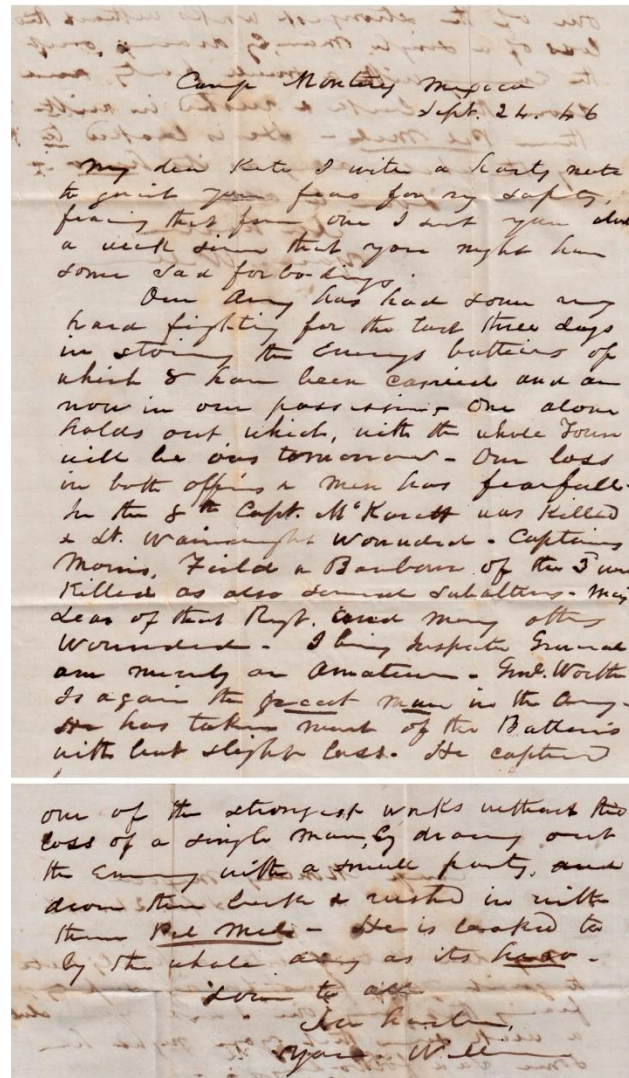 Camp Monterey Mexico
Sept. 24. 46
My dear Kate I write a hasty note
to quiet your fears for my safety,
fearing that from one I sent you about
a week since that you might have
some sad forbodings.
Our Army has had some very
hard fighting for the last three days
in storming the Enemys batteries of
which 8 have been carried and are
now in our possession - One alone
holds out, which, with the whole Town
will be ours tomorrow - Our loss
in both officers & men has fearfull -
In the 8th Capt. McKavett was killed
& Lt. Wainwright wounded - Captains
Morris, Field & Barbour of the 3
Killed as also several subalterns - Maj
Lear of that Regt. and many others
Wounded - I being Inspector General
am merely an Amateur - Genl. Worth
is again the great man in the Army -
He has taken most of the Batteries
with but slight loss. He captured
one of the strongest works without the
loss of a single man, by drawing out
the Enemy with a small party, and
drove them back & rushed in with
them Pel Mele - He is looked to
by the whole army as its hero -
Love to all
In haste,
Yours